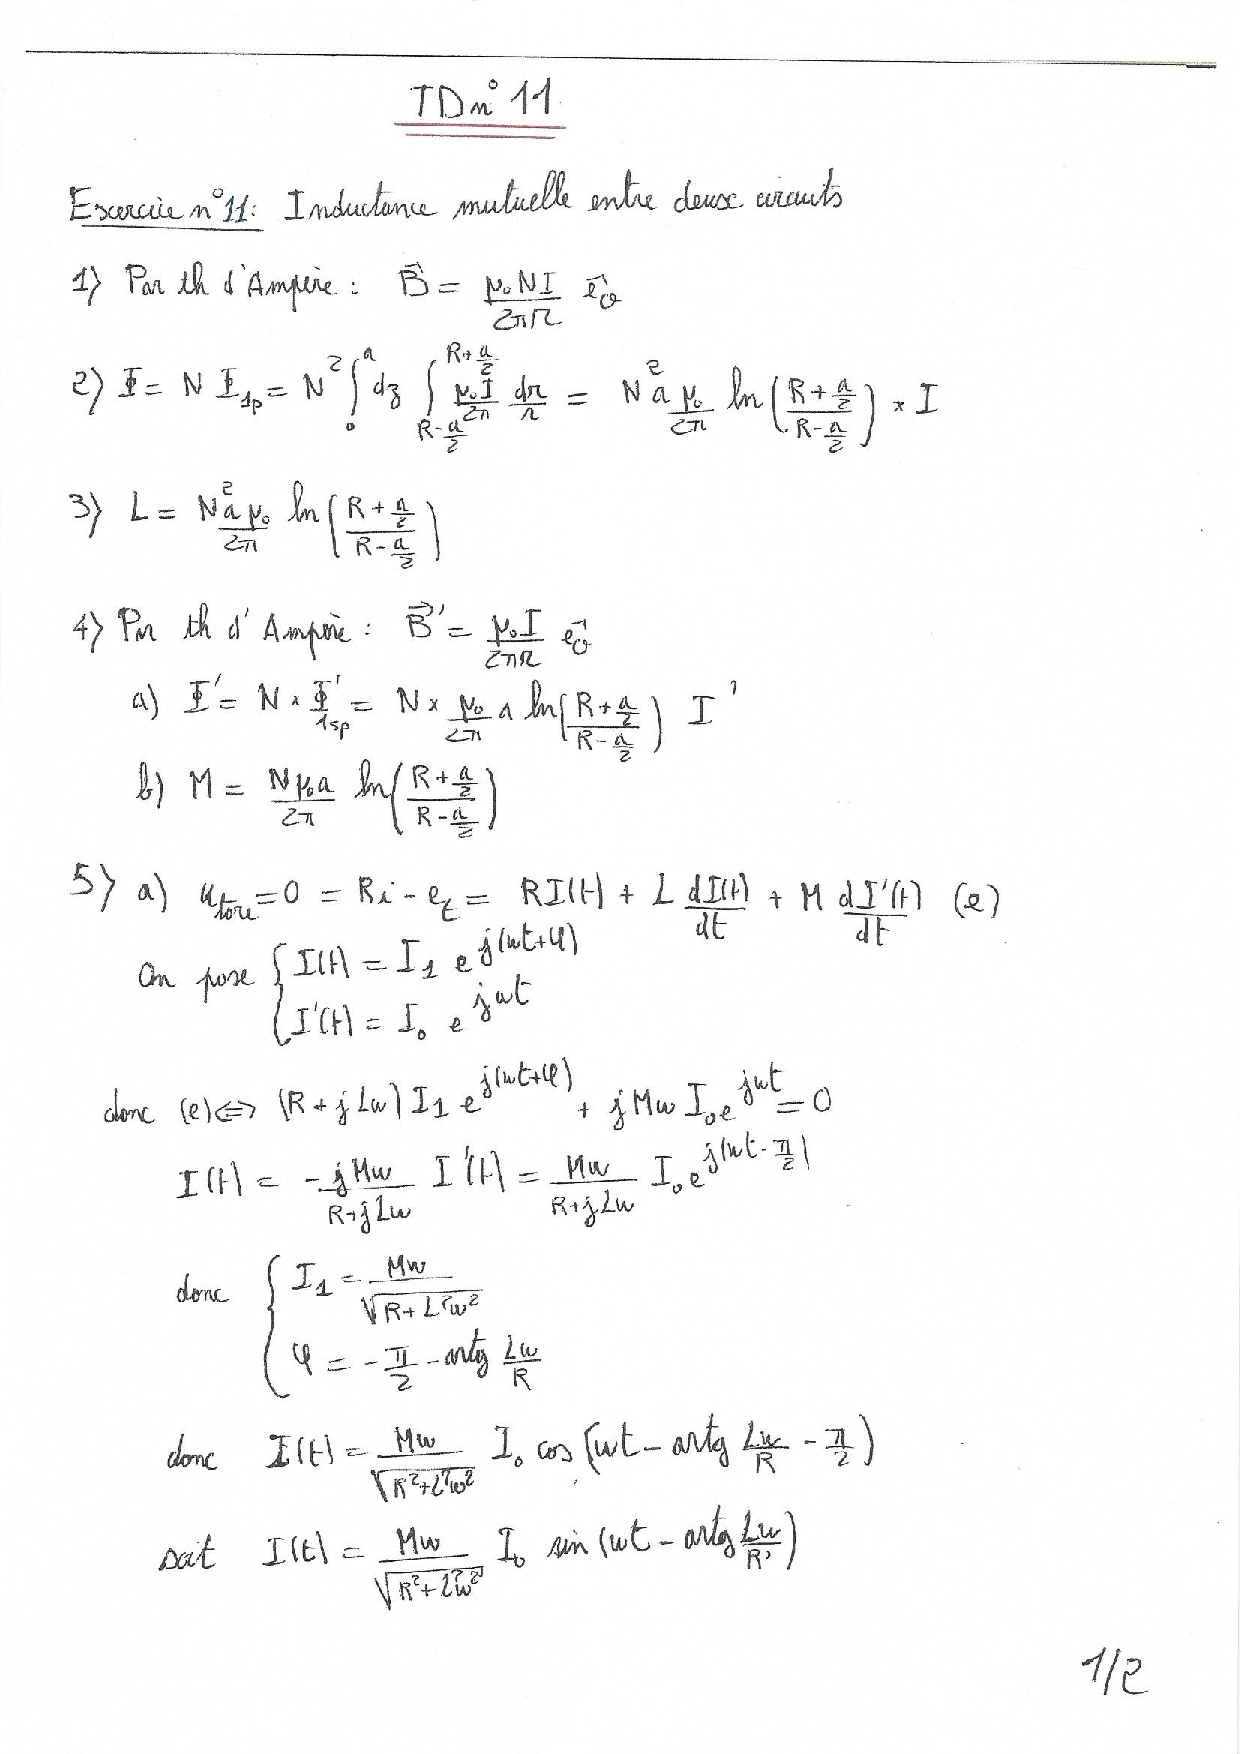 TD n° 11
Exercice n°11: Inductance mutuelle entre deux circuits
1) Par th d'Ampère : B⃗ = μ₀NI/2πr e⃗θ
2) Φ = N Φ₁ₚ = N² ∫₀ᵃ dz ∫_{R-a/2}^{R+a/2} μ₀I/2π dr/r = N²aμ₀/2π ln((R+a/2)/(R-a/2)) × I
3) L = N²aμ₀/2π ln((R+a/2)/(R-a/2))
4) Par th d'Ampère : B⃗' = μ₀I/2πr e⃗θ
a) Φ' = N × Φ'₁ₛₚ = N × μ₀/2π a ln((R+a/2)/(R-a/2)) I'
b) M = Nμ₀a/2π ln((R+a/2)/(R-a/2))
5) a) u_tore = 0 = Ri - e_t = RI(t) + L dI(t)/dt + M dI'(t)/dt (e)
On pose { I(t) = I₁ e^{j(ωt+φ)}
I'(t) = I₀ e^{jωt}
donc (e) ⇔ (R + jLω) I₁ e^{j(ωt+φ)} + jMω I₀ e^{jωt} = 0
I(t) = -jMω/(R+jLω) I'(t) = Mω/(R+jLω) I₀ e^{j(ωt-π/2)}
donc { I₁ = Mω/√(R+L²ω²)
φ = -π/2 - artg Lω/R
donc I(t) = Mω/√(R²+L²ω²) I₀ cos(ωt - artg Lω/R - π/2)
soit I(t) = Mω/√(R²+L²ω²) I₀ sin(ωt - artg Lω/R')
1/2